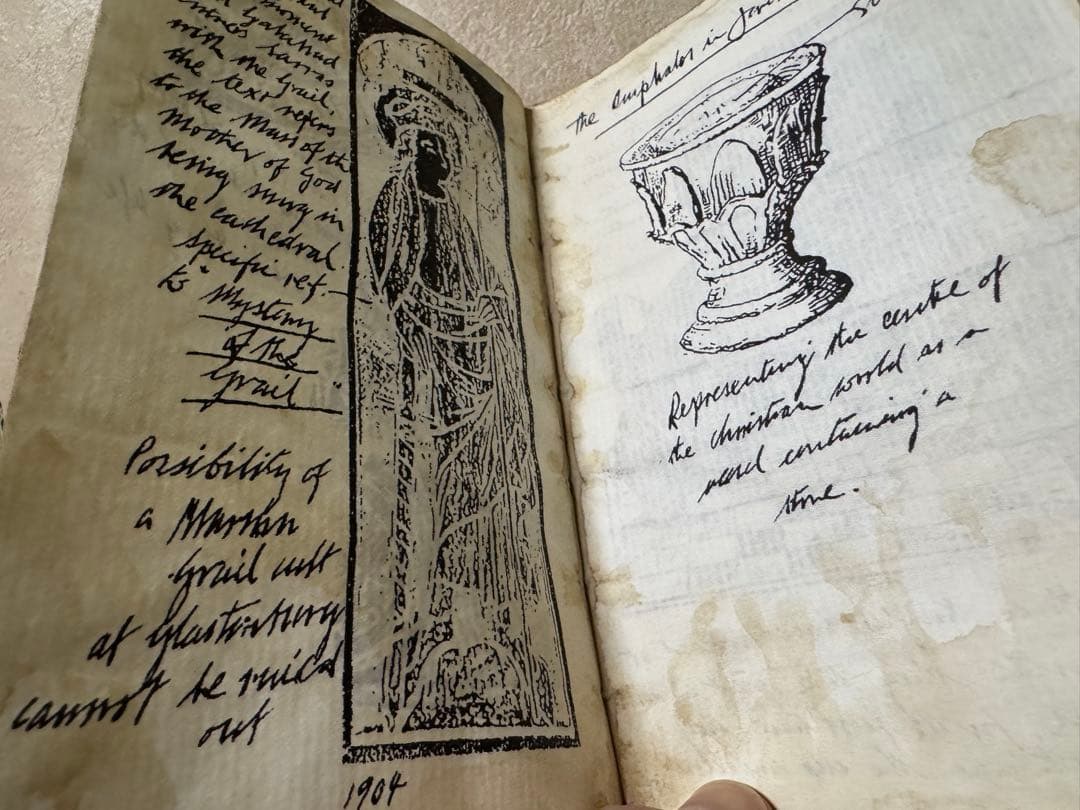 moment
Galahad
enters Sarras
with the Grail
the text refers
to the Mass of the
Mother of God
being sung in
the cathedral.
Specific ref.
to "Mystery
of the
Grail"
Possibility of
a Marian
Grail cult
at Glastonbury
cannot be ruled
out
1904
The Omphalos in
Representing the centre of
the christian world as a
containing a
stone.